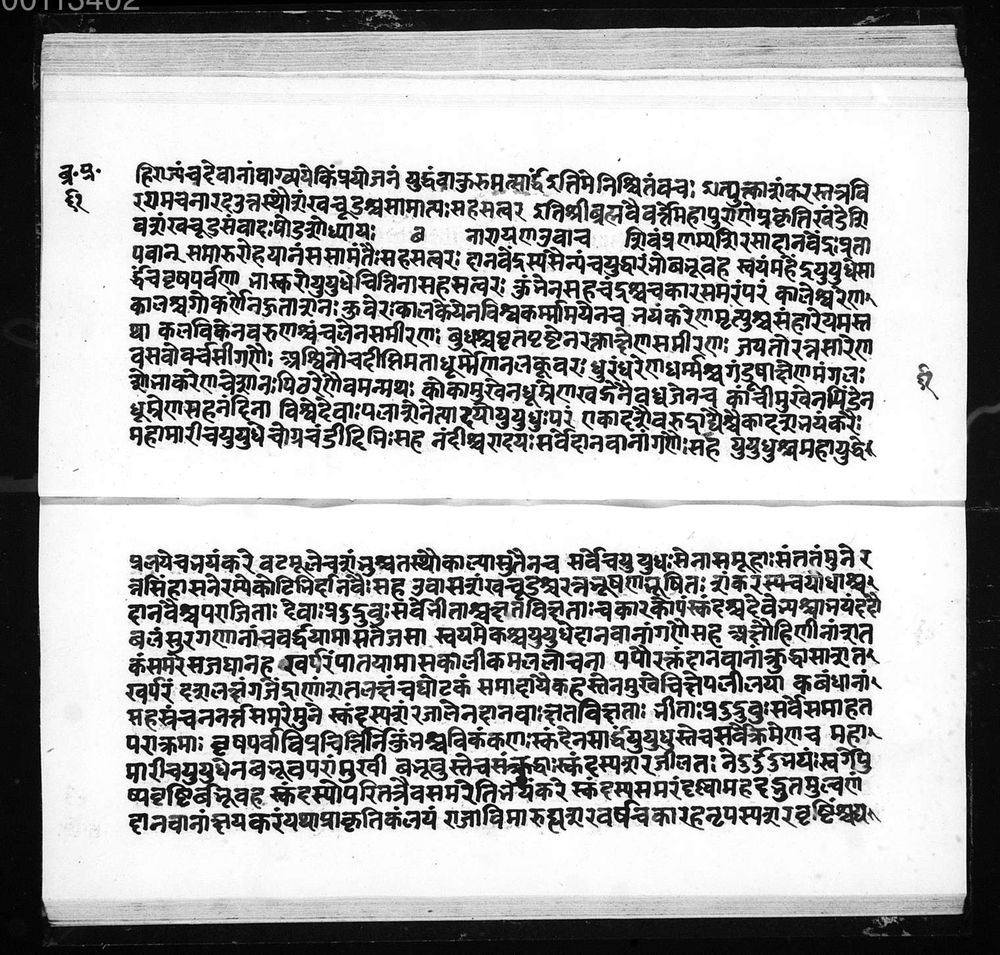 00113402
ब्र॰प्र॰
हिराज्यंचदेवानांवाग्व्ययेकिंप्रयोजनं युद्धंवाकुरुमत्सार्द्धंइतिमेनिश्चितंवचः इत्युत्काशंकरस्तत्रवि
ररामचनारदउत्तस्थौशंखचूडश्चसामात्यःसहसत्वर इतिश्रीब्रह्मवैवर्त्तेमहापुराणेप्रकृतिखंडेशि
वशंखचूडसंवादःषोडशोध्यायः नारायणउवाच शिवंप्रणम्यशिरसादानवेंद्रःप्रता
पवान् समारुरोहयानंससामंतैःसहसत्वरः दानवेंद्रस्यसैन्यंचयुद्धारंभोबभूवह स्वयंमहेंद्रयुयुधेसा
र्द्धंचवृषपर्वणा भास्करोयुयुधेविप्रचित्तिनासहसत्वरः कुंभेनसहचंद्रश्चचकारसमरंपरं कालेश्वरेण
कालश्चगोकर्णेनहुताशनः कुवेरःकालकेयेनविश्वकर्म्मामयेनच भयंकरेणमृत्युश्चसंहारेयमस्त
था कलविंकेनवरुणश्चंचलेनसमीरणः बुधश्चघृतपृष्टेनरक्ताक्षेणसमीरणः जयंतोरत्नसारेण
वसवोवर्चसीगणैः अश्विनौचदीप्तिमताधूम्रेणनलकूवरः धुरंधरेणधर्म्मश्चगंडूषाक्षेणमंगलः
शोभाकरेणचेशानःपिवरेणवमन्मथः कोकामुखेनधूम्रेणखङ्गेनैवध्वजेनच कांचीमुखेनपिंडेन
धूम्रेणसहनंदिना विश्वेदेवाःपलाशेनेत्यादयोयुयुधुःपरं एकादशवैरुद्राद्यैश्चैकादशभयंकरैः
महामारीचयुयुधेचोग्रचंडीदिभिःसह नंदीश्वरादयःसर्वेदानवानांगणैःसह युयुधुश्चमहायुद्धे
प्रलयेचभयंकरे वटमूलेचशंभुश्चतस्थौकाल्यासुतेनच सर्वेचयुयुधःसेनासमूहाःसंततंमुने र
त्नसिंहासनेरम्येकोटिभिर्दानवैःसह उवासशंखचूडश्चरत्नभूषणभूषितः शंकरस्यचयोधाश्च
दानवैश्चपराजिताः देवाःप्रदुद्रुवुःसर्वेभीताश्चक्षतविक्षताःचकारकोपंस्कंदश्चदेवेभ्यश्चाभयंददौ
बलंसुरगणानांचवर्द्धयामासतेजसा स्वयमेकश्चयुयुधेदानवानांगणैःसह अक्षौहिणीनांशत
कंसमरेसजघानह खर्परंपातयामासकालीकमललोचना पपौरक्तंदानवानांक्रुद्धासाशत
खर्परं दशलक्षंगजेंद्राणांशतलक्षंचघोटकं समादायैकहस्तेनमुखेचिक्षेपलीलया कबंधानां
सहस्रंचननर्त्तसमरेमुने स्कंदस्यशरजालेनदानवाःक्षतविक्षताः भीताःप्रदुद्रुवुःसर्वेसमाहत
पराक्रमाः वृषपर्वाविप्रचित्तिर्निकुंभश्चविकंकणःस्कंदेनसार्द्धंयुयुधुस्तेचसर्वेक्रमेणच महा
मारीचयुयुधेनबभूवपराङ्मुखी बभूवुस्तेचसंक्रुद्धाःस्कंदस्यशरजालतः नेदुर्दुंदुभयःस्वर्गेपु
ष्पवृष्टिर्बभूवह स्कंदस्योपरितत्रैवसमरेतिभयंकरे स्कंदस्यसमरंदृष्ट्वामहदद्भुतमुल्वणं
दानवानांक्षयकरंयथाप्राकृतिकंलयं राजाविमारुह्यशरवर्षंचकारहनृपस्यशरवृष्टिश्च